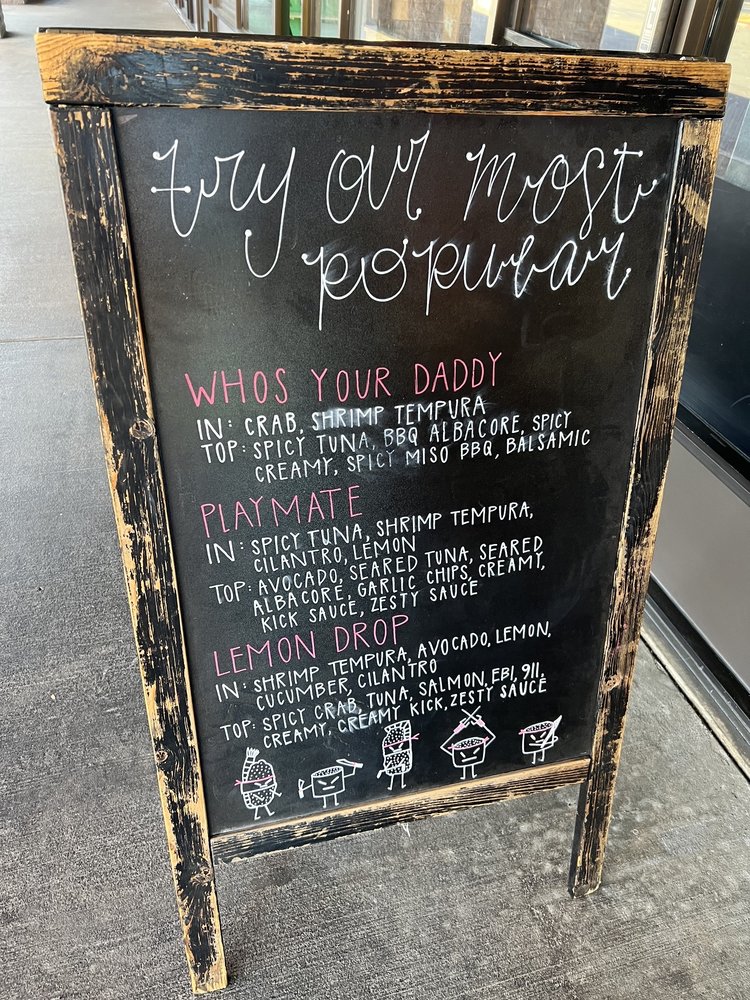 try our most
popular
WHOS YOUR DADDY
IN: CRAB, SHRIMP TEMPURA
TOP: SPICY TUNA, BBQ ALBACORE, SPICY
CREAMY, SPICY MISO BBQ, BALSAMIC
PLAYMATE
IN: SPICY TUNA, SHRIMP TEMPURA,
CILANTRO, LEMON
TOP: AVOCADO, SEARED TUNA, SEARED
ALBACORE, GARLIC CHIPS, CREAMY,
KICK SAUCE, ZESTY SAUCE
LEMON DROP
IN: SHRIMP TEMPURA, AVOCADO, LEMON,
CUCUMBER, CILANTRO
TOP: SPICY CRAB, TUNA, SALMON, EBI, 911,
CREAMY, CREAMY KICK, ZESTY SAUCE